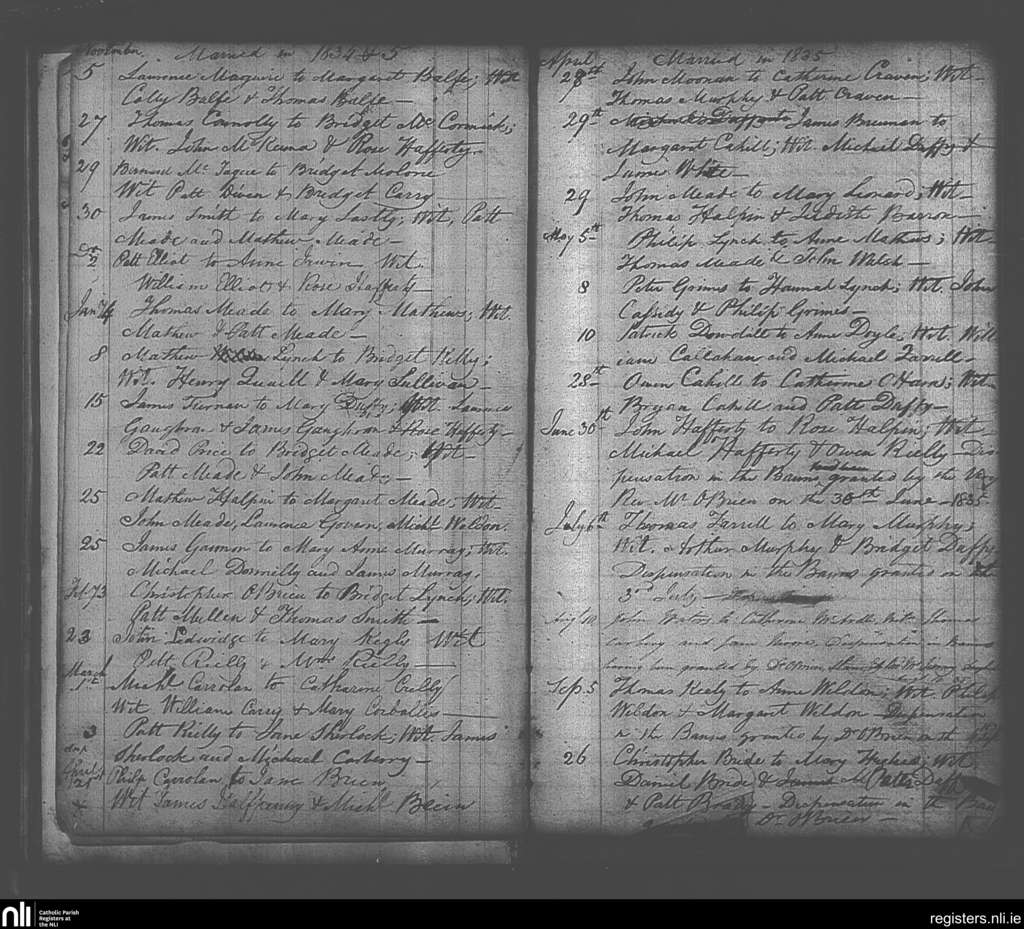 November Married in 1834 & 5
5 Laurence Maguire to Margaret Balfe; Wit
Catty Balfe & Thomas Balfe —
27 Thomas Connolly to Bridget Mc Cormick;
Wit. John McKenna & Rose Hafferty.
29 Bernard Mc Tague to Bridget Malone
Wit Patt Owen & Bridget Carry
30 James Smith to Mary ; Wit, Patt
Meade and Mathew Meade —
2 Patt Elliot to Anne Irwin Wit.
William Elliott & Rose Hafferty
Jany Thomas Meade to Mary Mathews; Wit.
Mathew & Patt Meade —
8 Mathew Lynch to Bridget Reilly;
Wit. Henry Quaill & Mary Sullivan —
15 James Tiernan to Mary Duffy; Wit. Laurence
Gaughran & James Gaughran & Rose Hafferty —
22 David Price to Bridget Meade; Wit —
Patt Meade & John Meade —
25 Mathew Halpin to Margaret Meade; Wit —
John Meade, Laurence Govern, Michl. Weldon.
25 James Gannon to Mary Anne Murray; Wit.
Michael Donnelly and James Murray.
Feb Christopher O'Brien to Bridget Lynch; Wit.
Patt Mullen & Thomas Smith —
23 John Ledwidge to Mary Wit
Patt Reilly & Wm Reilly —
March
1st Michl Carrolan to Catharine Crilly
Wit William Carry & Mary Corballis —
3 Patt Reilly to Jane Sherlock; Wit. James
Sherlock and Michael Carberry —
April
21 Philip Carrolan to Jane Brien
Wit James Halfpenny & Michl Brein
April Married in 1835
28th John Moonan to Catherine Craven; Wit —
Thomas Murphy & Patt Craven —
29th James Brennan to
Margaret Cahill; Wit. Michael Duffy &
Jame White —
29 John Meade to Mary Leonard; Wit —
Thomas Halpin & Judith Barron —
May 5th Philip Lynch to Anne Mathews; Wit
Thomas Meade & John Walsh —
8 Peter Grimes to Hannah Lynch; Wit. John
Cassidy & Philip Grimes —
10 Patrick Dowdall to Anne Doyle, Wit. Will
iam Callahan and Michael Farrell —
28th Owen Cahill to Catherine O'Hara; Wit —
Bryan Cahill and Patt Duffy —
June 30th John Hafferty to Rose Halpin; Wit —
Michael Hafferty & Owen Reilly — Dis
pensation in the Banns granted by the Very
Rev. Mr. O'Brien on the 30th June — 1835
July 6th Thomas Farrell to Mary Murphy;
Wit. Arthur Murphy & Bridget Duffy
Dispensation in the Banns granted on the
3rd July —
Aug 10 John Waters to Catherine Wit. Thomas
and Jane Moore, Dispensation in Banns
having been granted by Dr O'Brien
Sep. 5 Thomas Kealy to Anne Weldon; Wit. Philip
Weldon & Margaret Weldon — Dispensation
in the Banns granted by Dr O'Brien on the
26 Christopher Bride to Mary Hughes; Wit
Daniel Bride & Patt Duffy
& Patt Brady — Dispensation in the Bann
Dr O'Brien —
nli Catholic Parish
Registers at
the NLI
registers.nli.ie